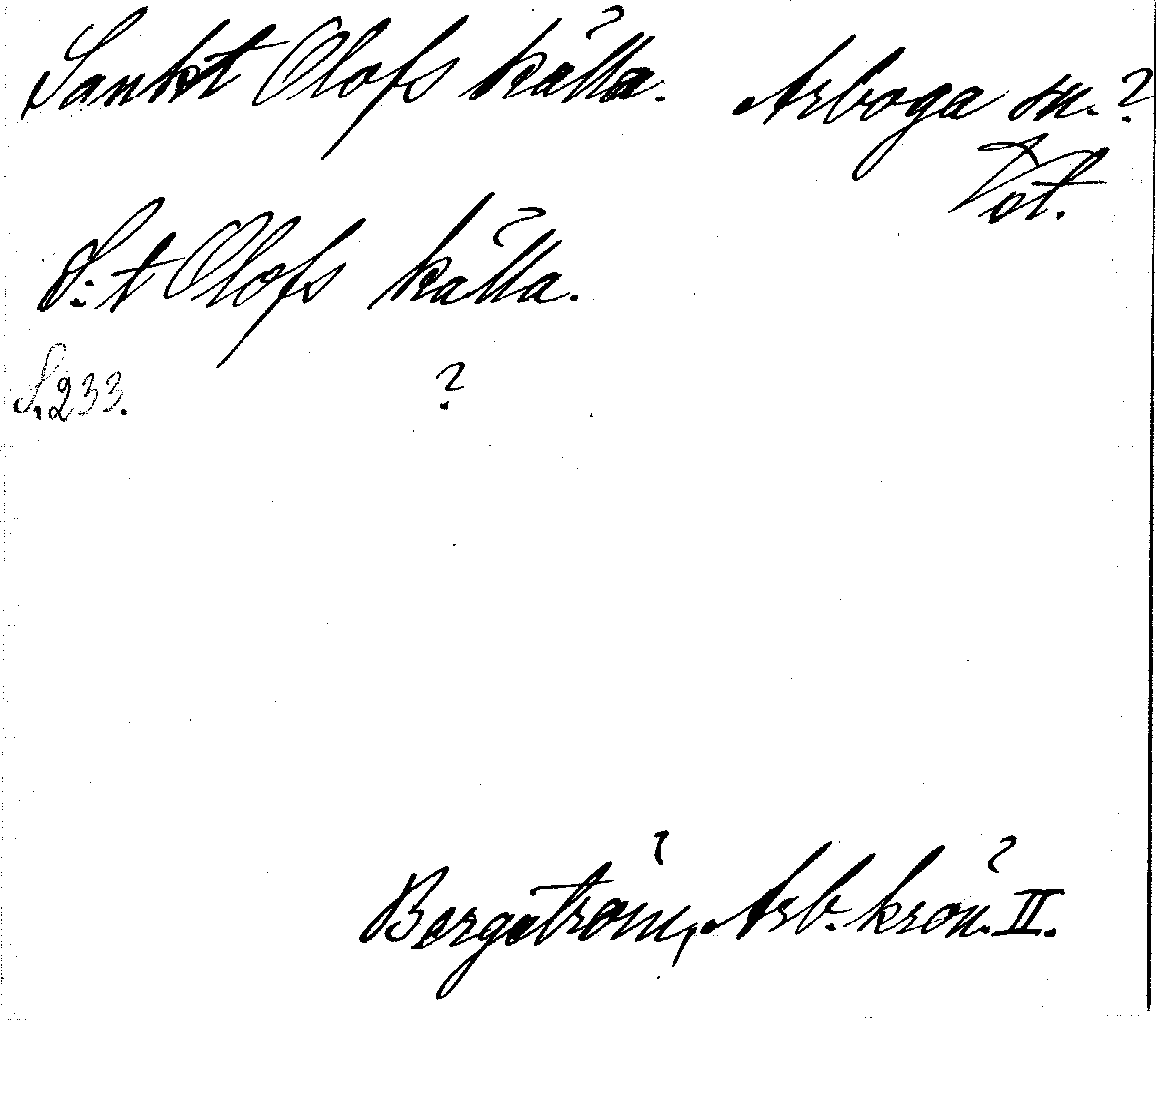 Sankt Olofs källa. Arboga sn.?
Vst.
S:t Olofs källa.
S. 233. ?
Bergström, Arb. krön. II.